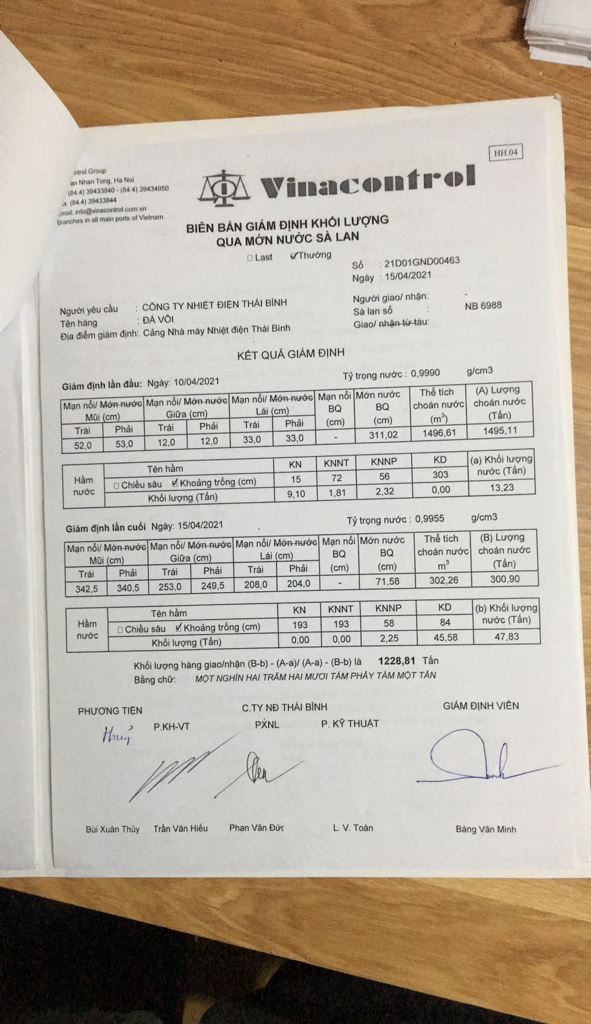 HH.04
ntrol Group
an Nhan Tong, Ha Noi
(84.4) 39433840 - (84.4) 39434950
x: (84.4) 39433844
mail: info@vinacontrol.com.vn
Branches in all main ports of Vietnam
Vinacontrol
BIÊN BẢN GIÁM ĐỊNH KHỐI LƯỢNG
QUA MỚN NƯỚC SÀ LAN
□ Last ✓Thường
Số : 21D01GND00463
Ngày : 15/04/2021
Người yêu cầu : CÔNG TY NHIỆT ĐIỆN THÁI BÌNH
Người giao/ nhận: -
Tên hàng : ĐÁ VÔI
Sà lan số : NB 6988
Địa điểm giám định: Cảng Nhà máy Nhiệt điện Thái Bình
Giao/ nhận từ tàu:
KẾT QUẢ GIÁM ĐỊNH
Giám định lần đầu: Ngày: 10/04/2021 Tỷ trọng nước : 0,9990 g/cm3
Mạn nổi/ Mớn nước Mũi (cm) Mạn nổi/ Mớn nước Giữa (cm) Mạn nổi/ Mớn nước Lái (cm) Mạn nổi BQ (cm) Mớn nước BQ (cm) Thể tích choán nước (m³) (A) Lượng choán nước (Tấn)
Trái Phải Trái Phải Trái Phải
52,0 53,0 12,0 12,0 33,0 33,0 - 311,02 1496,61 1495,11
Hầm nước Tên hầm KN KNNT KNNP KD (a) Khối lượng nước (Tấn)
□ Chiều sâu ✓ Khoảng trống (cm) 15 72 56 303
Khối lượng (Tấn) 9,10 1,81 2,32 0,00 13,23
Giám định lần cuối: Ngày: 15/04/2021 Tỷ trọng nước : 0,9955 g/cm3
Mạn nổi/ Mớn nước Mũi (cm) Mạn nổi/ Mớn nước Giữa (cm) Mạn nổi/ Mớn nước Lái (cm) Mạn nổi BQ (cm) Mớn nước BQ (cm) Thể tích choán nước m³ (B) Lượng choán nước (Tấn)
Trái Phải Trái Phải Trái Phải
342,5 340,5 253,0 249,5 208,0 204,0 - 71,58 302,26 300,90
Hầm nước Tên hầm KN KNNT KNNP KD (b) Khối lượng nước (Tấn)
□ Chiều sâu ✓ Khoảng trống (cm) 193 193 58 84
Khối lượng (Tấn) 0,00 0,00 2,25 45,58 47,83
Khối lượng hàng giao/nhận (B-b) - (A-a)/ (A-a) - (B-b) là 1228,81 Tấn
Bằng chữ: MỘT NGHÌN HAI TRĂM HAI MƯƠI TÁM PHẨY TÁM MỘT TẤN
PHƯƠNG TIỆN C.TY NĐ THÁI BÌNH GIÁM ĐỊNH VIÊN
P.KH-VT PXNL P. KỸ THUẬT
Thuỷ
Bùi Xuân Thủy Trần Văn Hiếu Phan Văn Đức L. V. Toàn Bàng Văn Minh